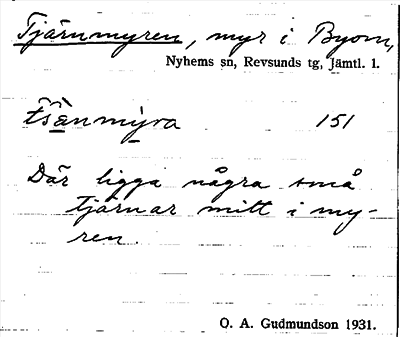 Tjärnmyren, myr i Byom,
Nyhems sn, Revsunds tg, Jämtl. l.
151
Där ligga några små
tjärnar mitt i my-
ren.
O. A. Gudmundson 1931.